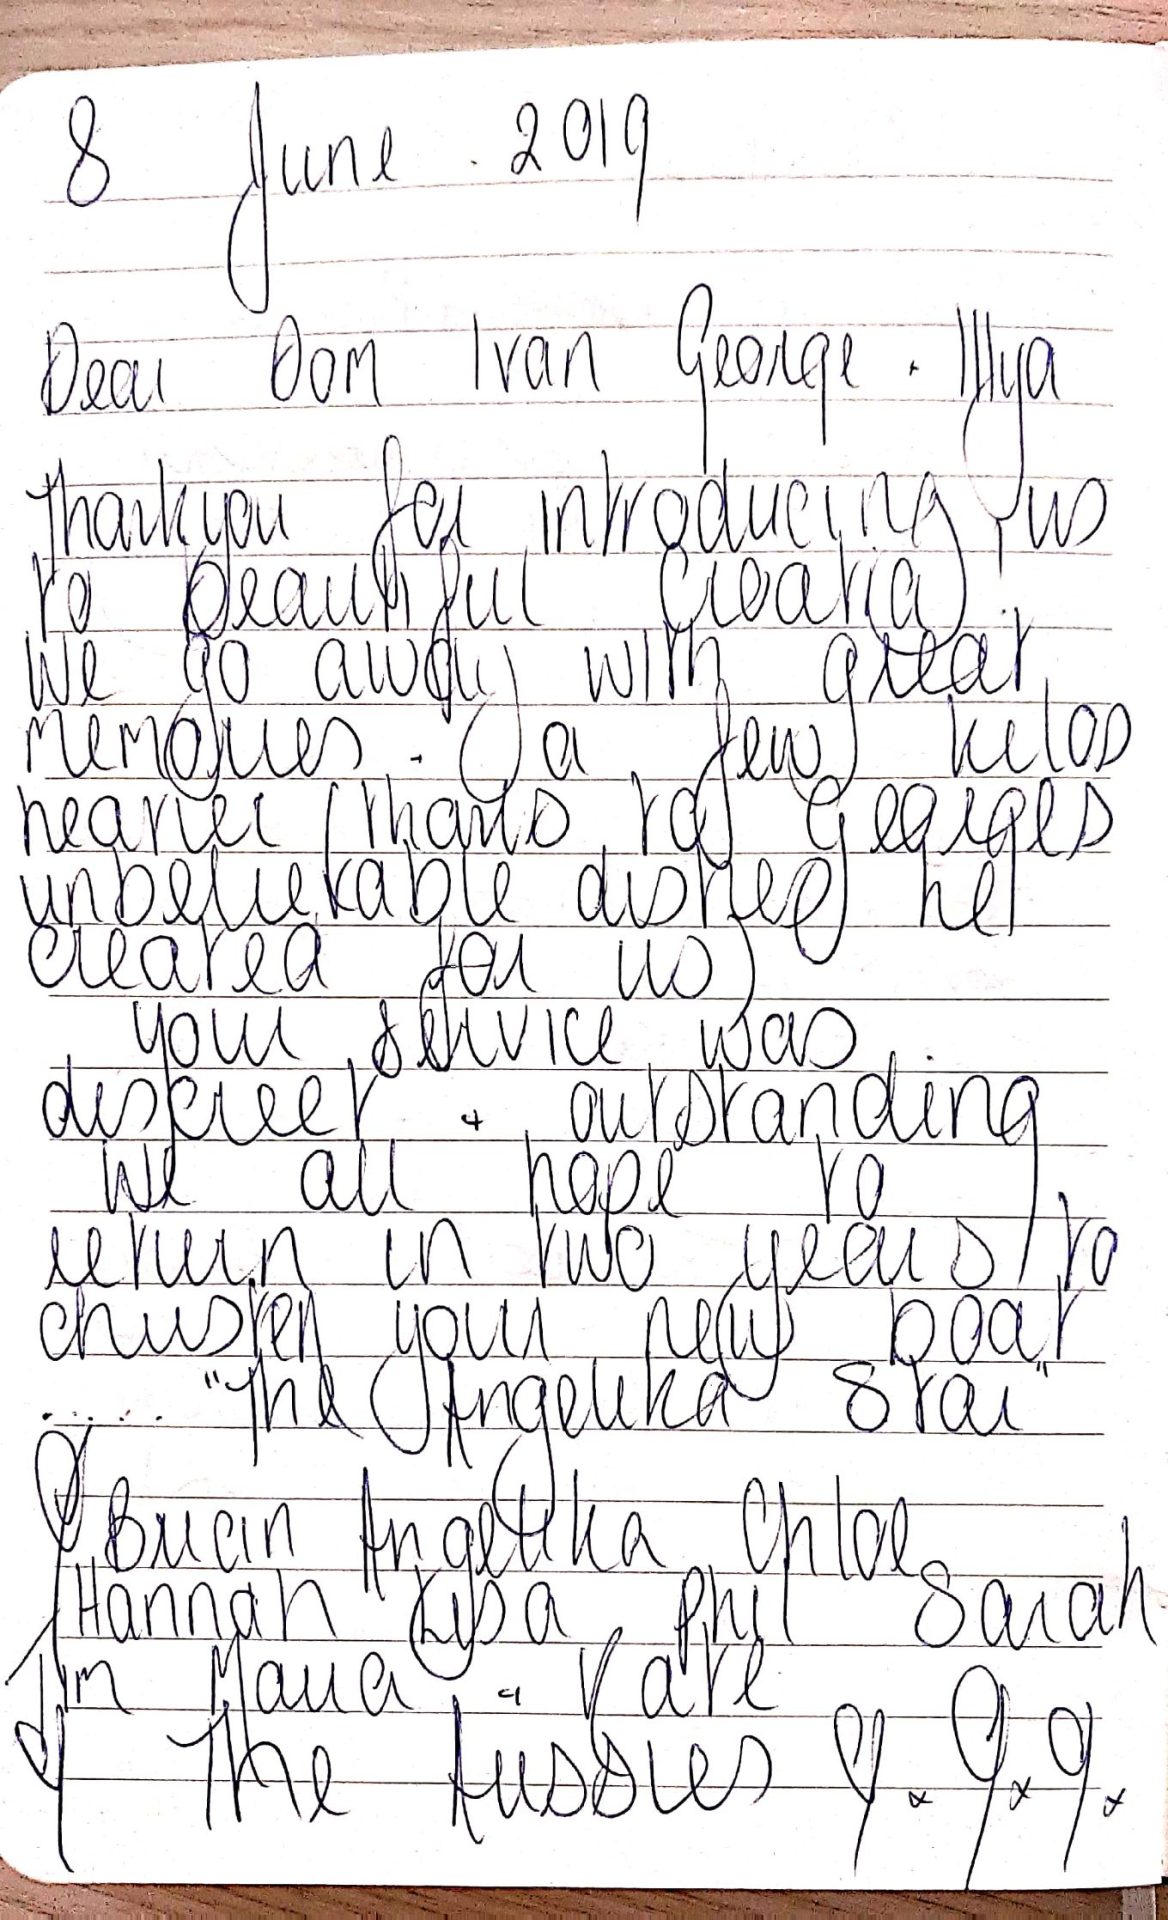 8 June . 2019
Dear Dom Ivan George + Illya
Thankyou for introducing us
to beautiful Croatia.
We go away with great
memories. a few kilos
heavier (thanks to Georges
unbelievable dishes he
created for us)
your service was
discreet + outstanding
We all hope to
return in two years to
christen your new boat
..... "The Angelika Star"
Angelika Chloe
Hannah Lisa Phil Sarah
Jim Maria + Kate
The Aussies x x x